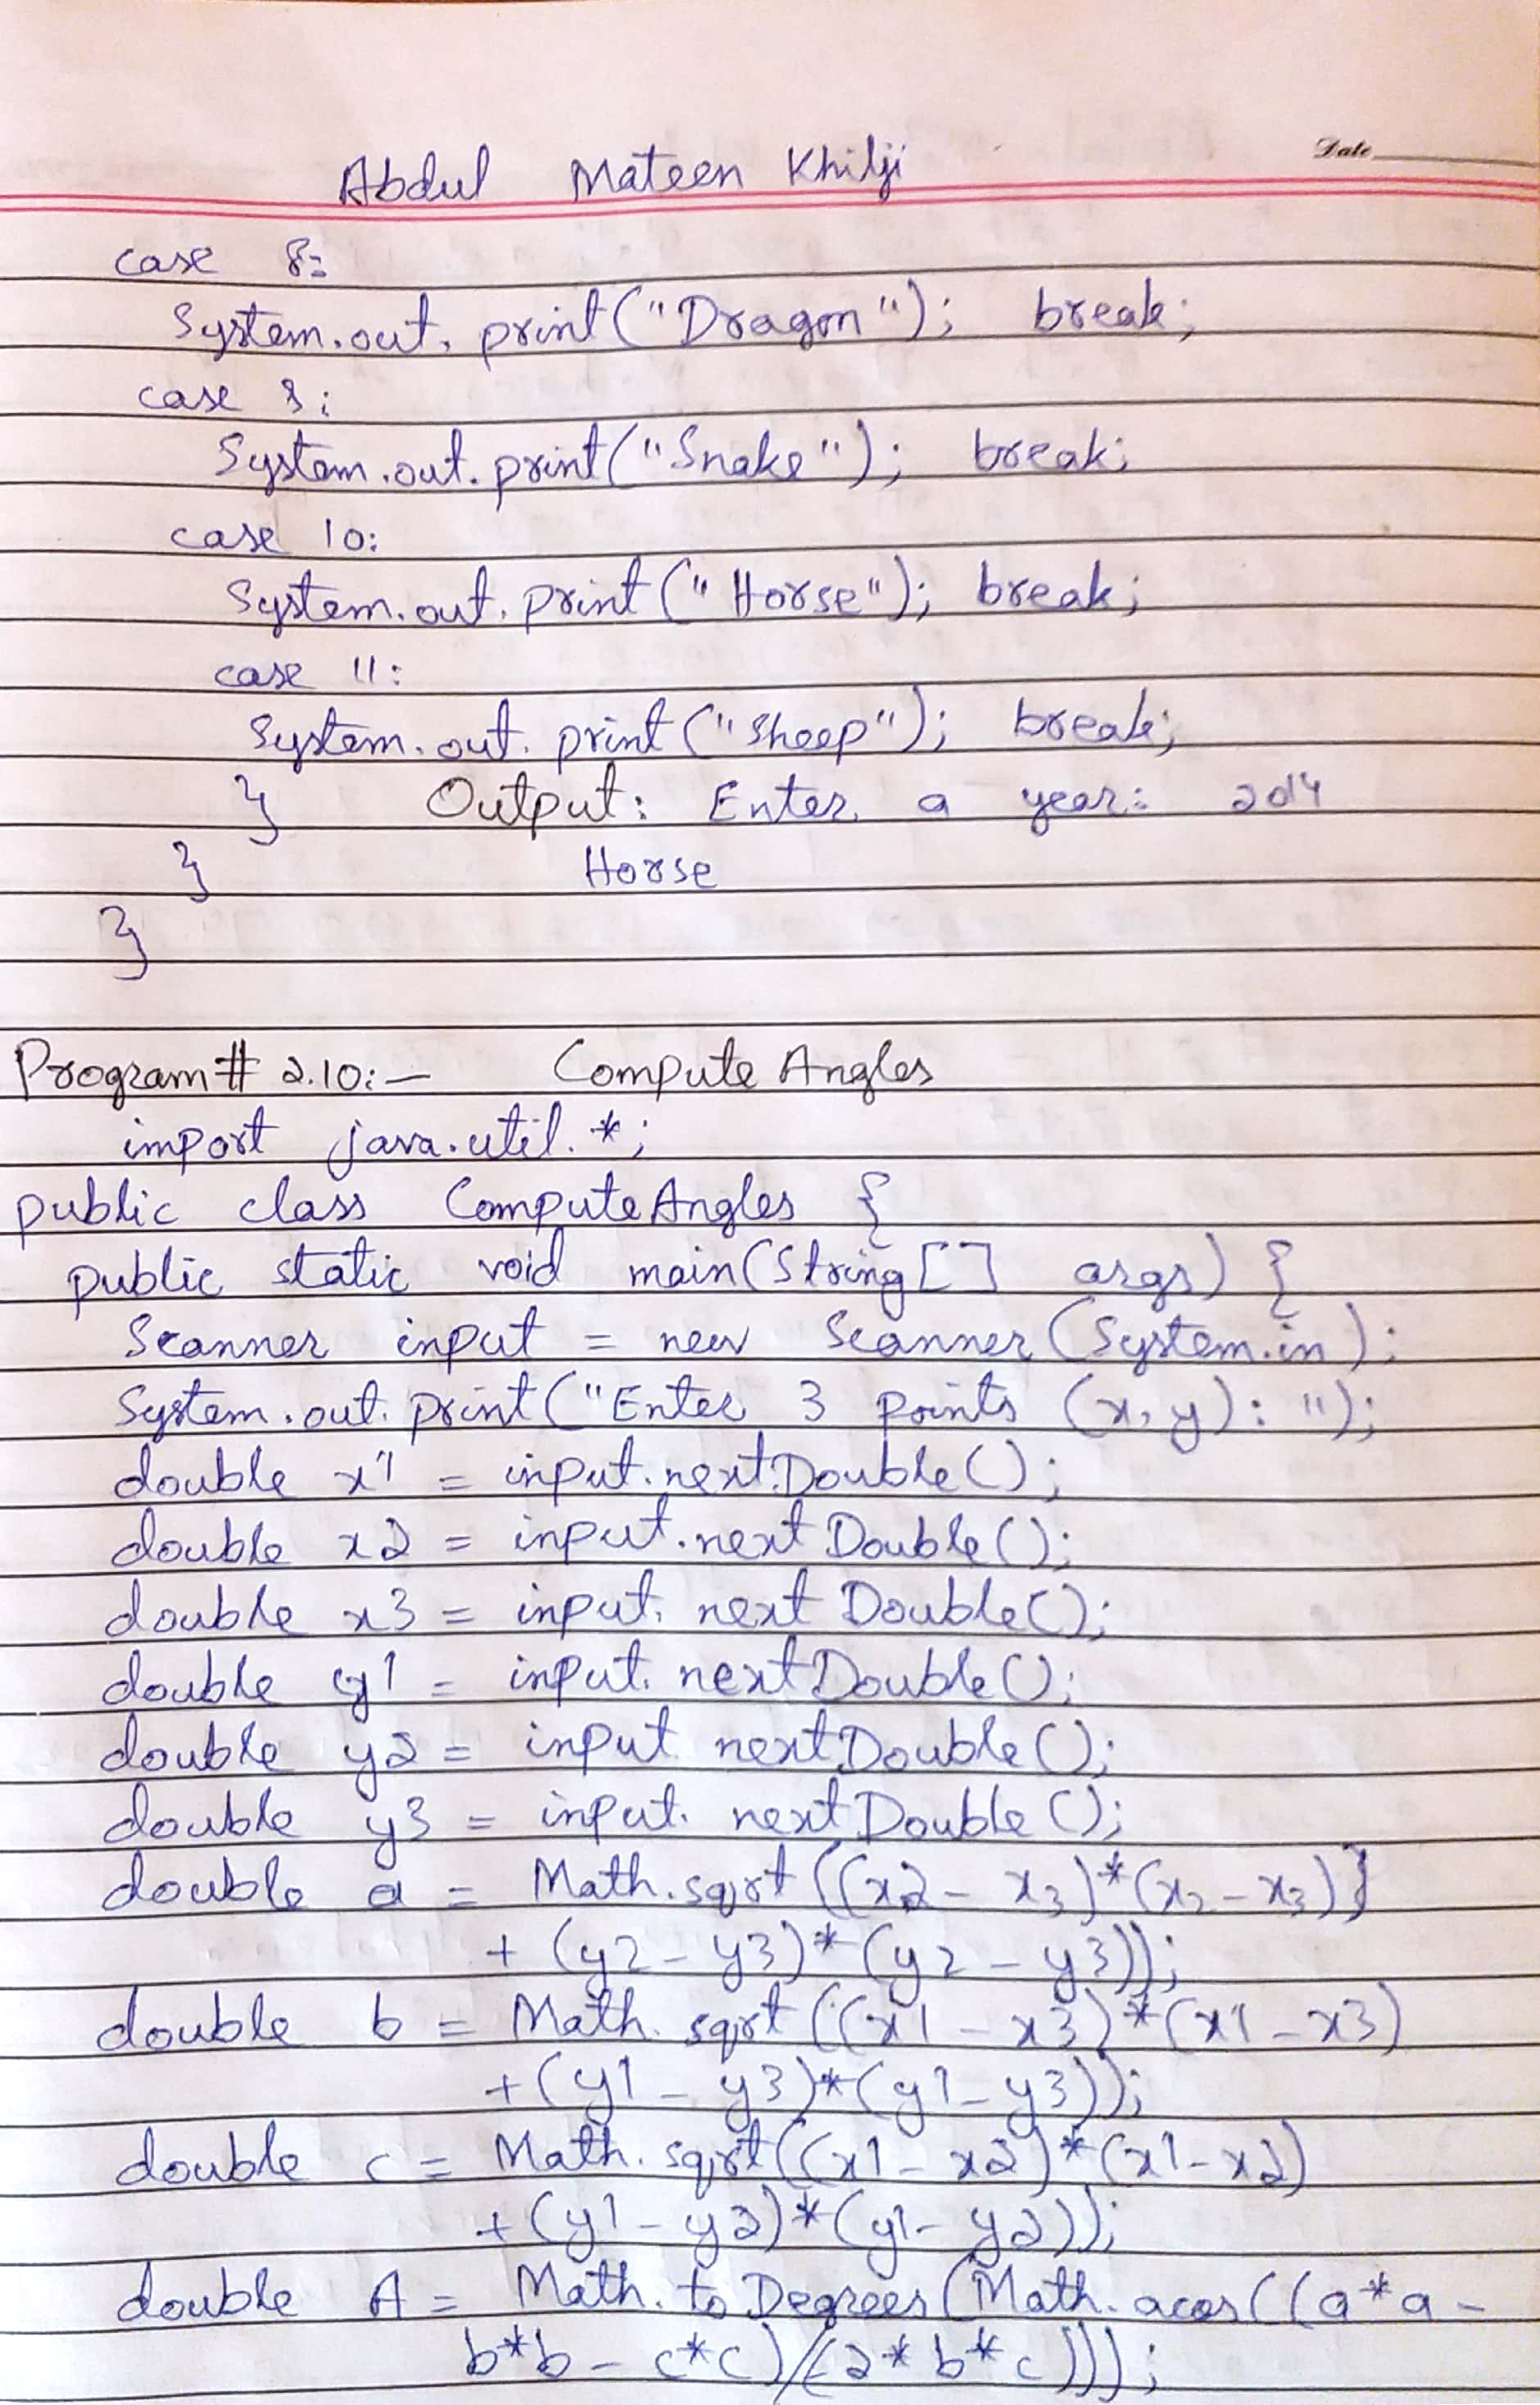 Date
Abdul Mateen Khilji
case 8:
System.out.print("Dragon"); break;
case 9:
System.out.print("Snake"); break;
case 10:
System.out.print("Horse"); break;
case 11:
System.out.print("Sheep"); break;
} Output: Enter a year: 2014
} Horse
}
Program# 2.10:- Compute Angles
import java.util.*;
public class ComputeAngles {
public static void main(String[] args) {
Scanner input = new Scanner(System.in);
System.out.print("Enter 3 points (x,y): ");
double x1 = input.nextDouble();
double x2 = input.nextDouble();
double x3 = input.nextDouble();
double y1 = input.nextDouble();
double y2 = input nextDouble();
double y3 = input.nextDouble();
double a = Math.sqrt((x2-x3)*(x2-x3)}
+ (y2-y3)*(y2-y3));
double b = Math.sqrt((x1-x3)*(x1-x3)
+(y1-y3)*(y1-y3));
double c = Math.sqrt((x1-x2)*(x1-x2)
+(y1-y2)*(y1-y2));
double A = Math.toDegrees(Math.acos((a*a-
b*b-c*c)/(2*b*c)));